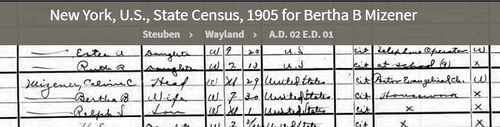 New York, U.S., State Census, 1905 for Bertha B Mizener
Steuben > Wayland > A.D. 02 E.D. 01
Estea A Daughter W 7 20 U.S cit Telephone Operator W
Ruth R Daughter W 7 13 U.S cit at school (9) X
Mizener, Calvin C Head W 29 United States cit Pastor Evangelical Ch. W
Bertha B Wife W 7 30 United States cit Housework X
Ralph L Son W 1 United States cit X X